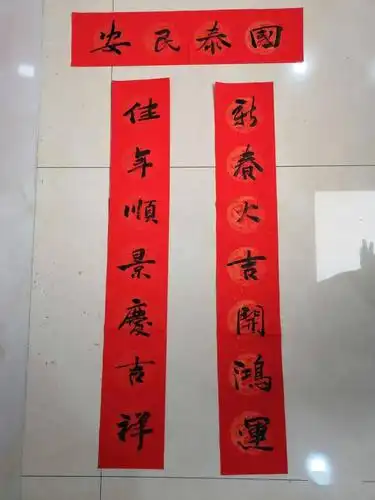 國泰民安
新春大吉開鴻運
佳年順景慶吉祥